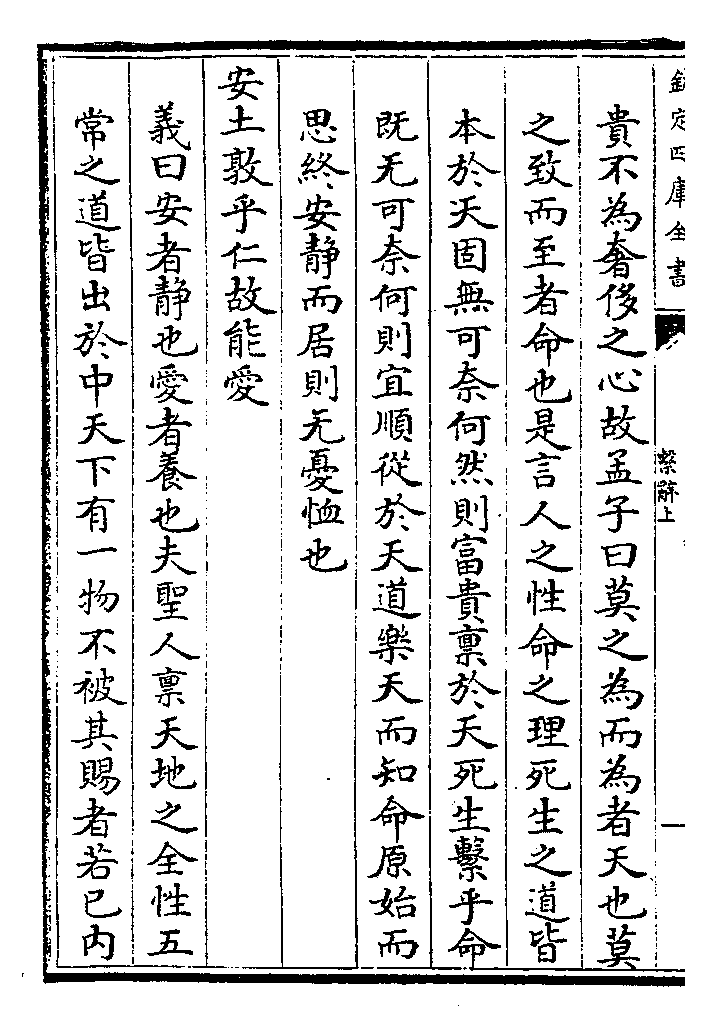 欽定四庫全書
繫辭上
貴不為奢侈之心故孟子曰莫之為而為者天也莫
之致而至者命也是言人之性命之理死生之道皆
本於天固無可奈何然則富貴禀於天死生繫乎命
既无可奈何則宜順從於天道樂天而知命原始而
思終安静而居則无憂恤也
安土敦乎仁故能愛
義曰安者静也愛者養也夫聖人禀天地之全性五
常之道皆出於中天下有一物不被其賜者若已内